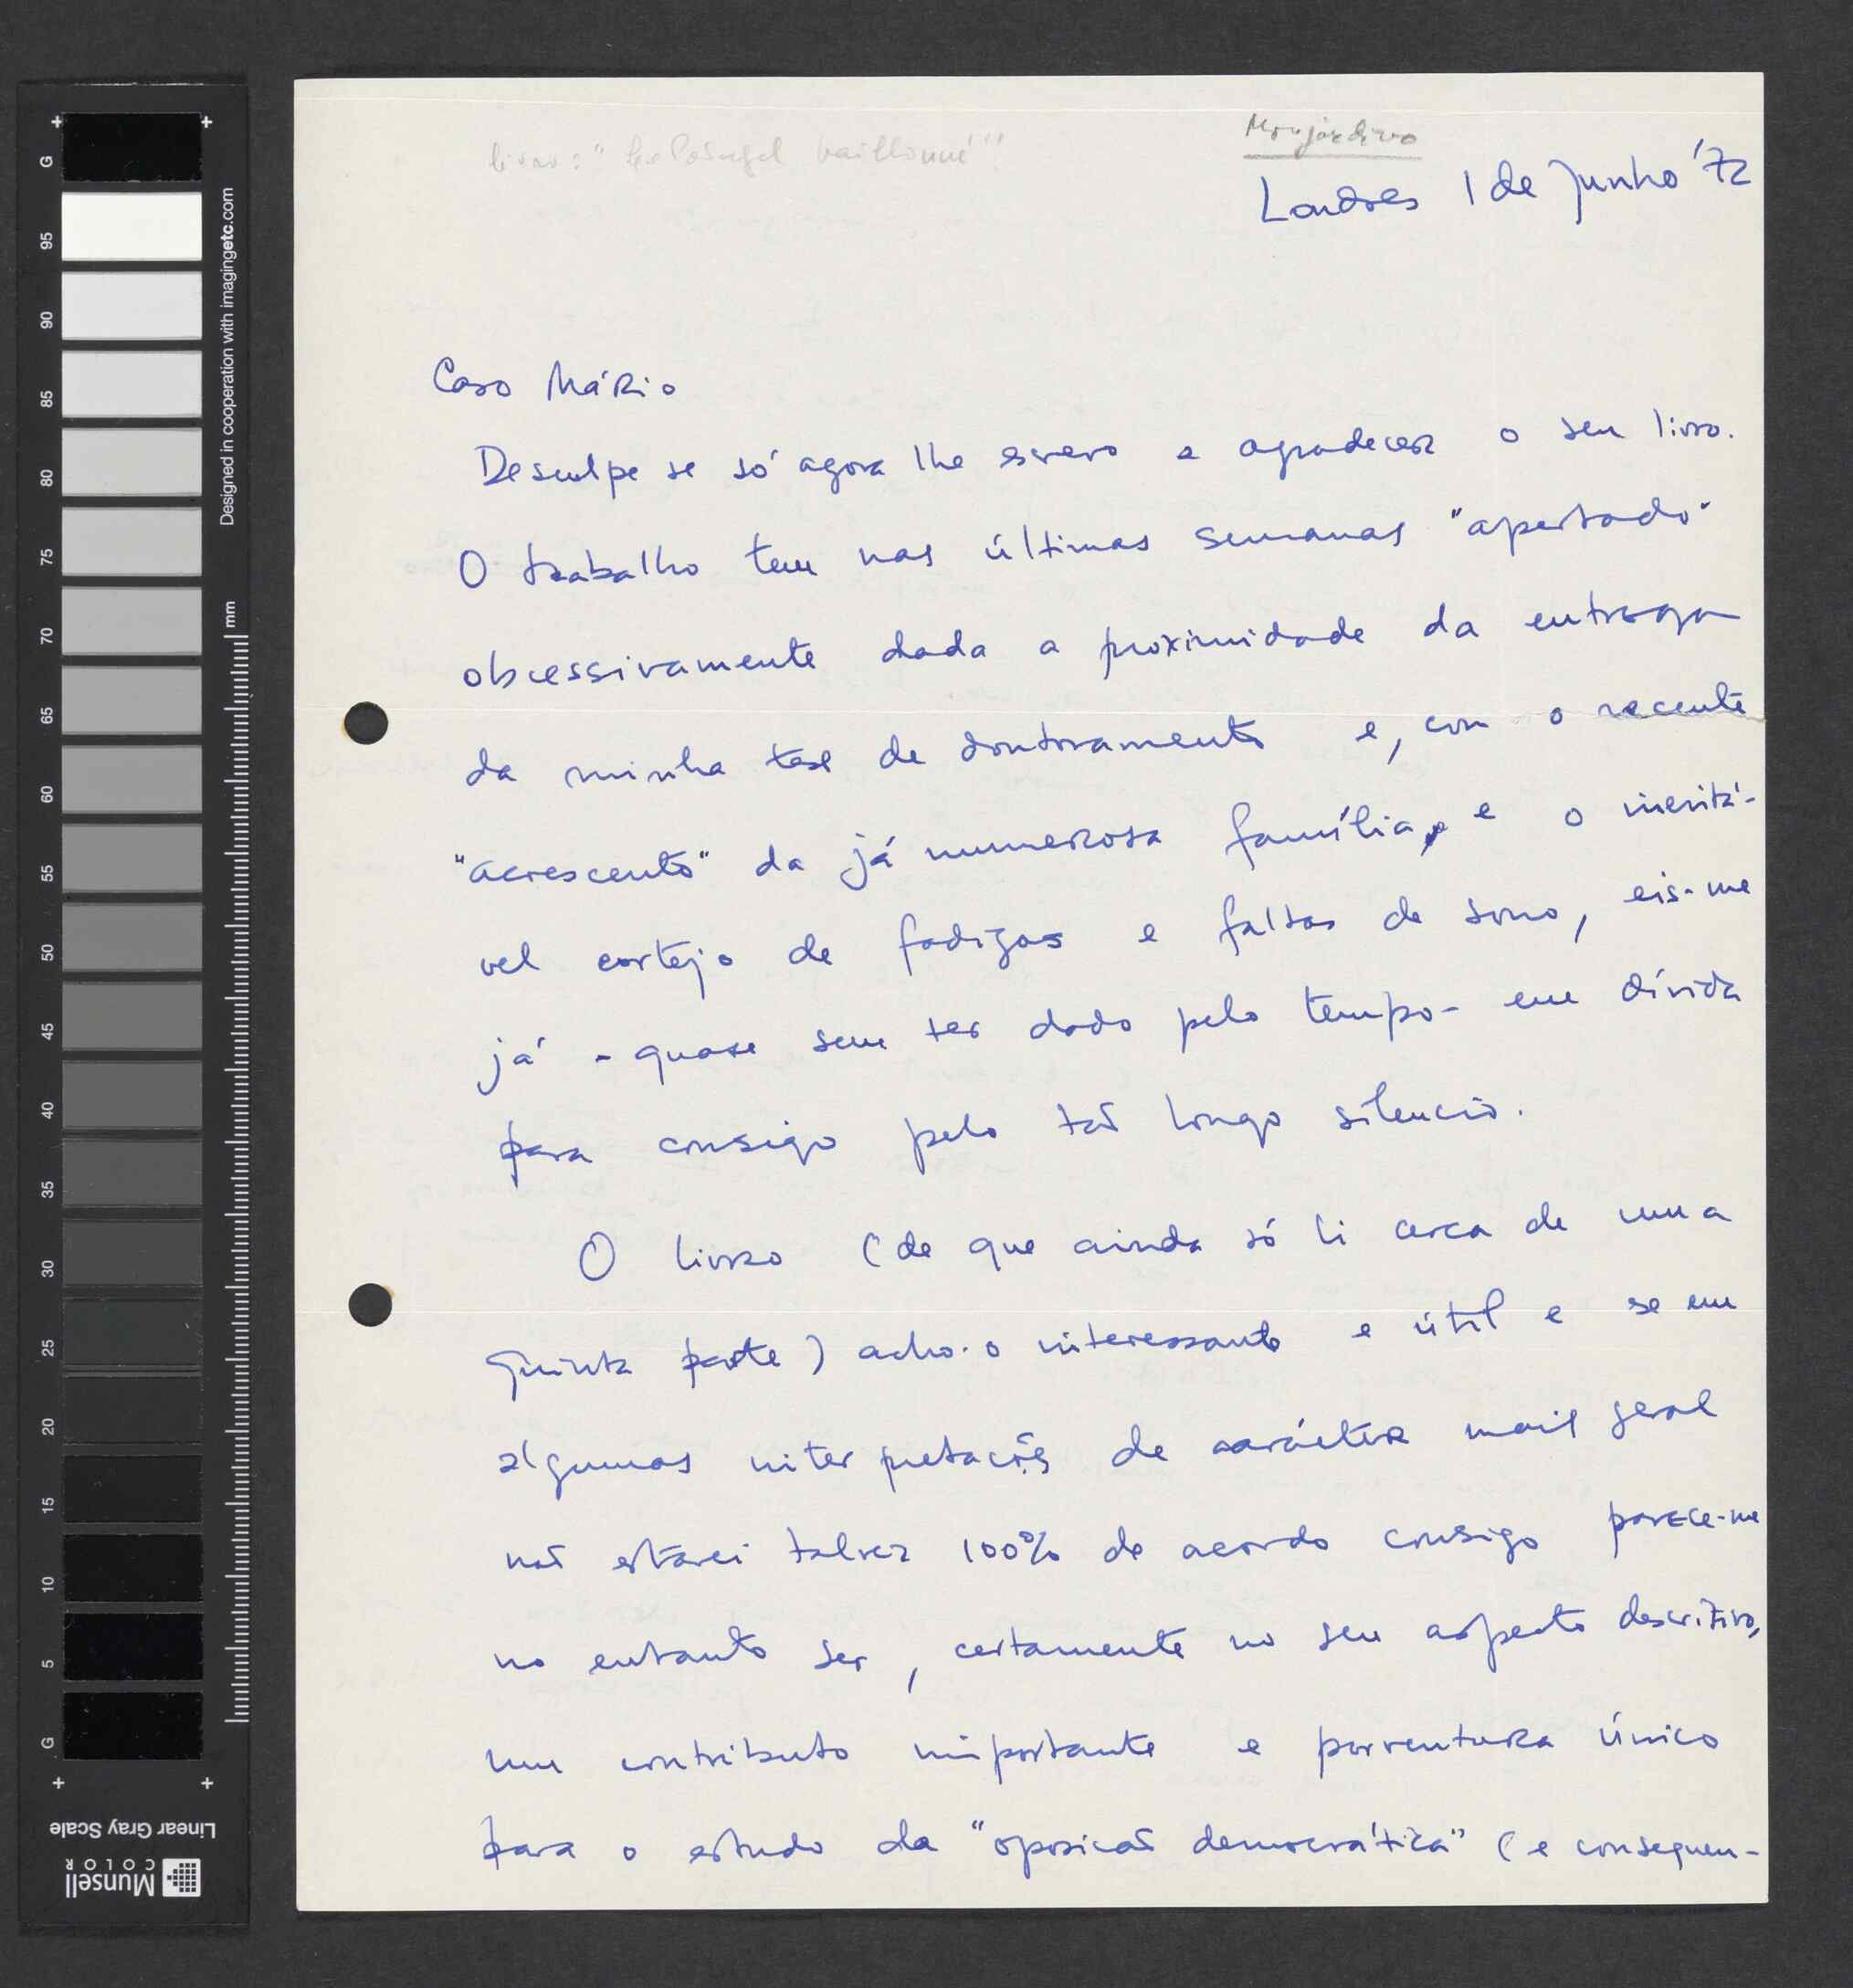 livro: "Le Portugal baillonné"!
Monjardino
Londres 1 de Junho '72
Caro Mário
Desculpe se só agora lhe escrevo a agradecer o seu livro.
O trabalho tem nas últimas semanas "apertado"
obcessivamente dada a proximidade da entrega
da minha tese de doutoramento e, com o recente
"acrescento" da já numerosa família, e o inevitá-
vel cortejo de fadigas e faltas de sono, eis-me
já - quase sem ter dado pelo tempo - em dívida
para consigo pelo tão longo silêncio.
O livro (de que ainda só li cerca de uma
quinta parte) acho-o interessante e útil e se em
algumas interpretações de carácter mais geral
não estarei talvez 100% de acordo consigo parece-me
no entanto ser, certamente no seu aspecto descritivo,
um contributo importante e porventura único
para o estudo da "oposição democrática" (e consequen-
G
95
90
85
80
75
70
65
60
55
50
45
40
35
30
25
20
15
10
5
G
Designed in cooperation with imagingetc.com
mm
Linear Gray Scale
Munsell
COLOR